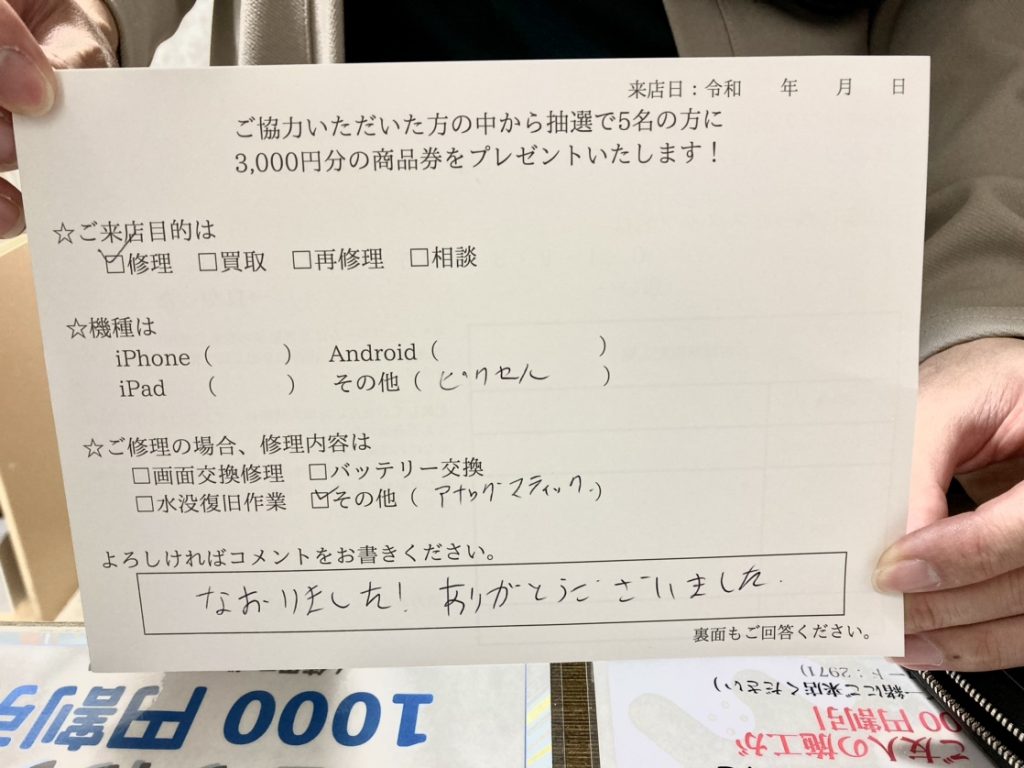 来店日：令和 年 月 日
ご協力いただいた方の中から抽選で5名の方に
3,000円分の商品券をプレゼントいたします！
☆ご来店目的は
☑修理 □買取 □再修理 □相談
☆機種は
iPhone（ ） Android（ ）
iPad （ ） その他（ピクセル ）
☆ご修理の場合、修理内容は
□画面交換修理 □バッテリー交換
□水没復旧作業 ☑その他（アナッグマティック.）
よろしければコメントをお書きください。
なおりました！ありがとうございました.
裏面もご回答ください。
1000円割引
ご友人の施工が
00円割引
一緒にご来店ください)
ード：2971)